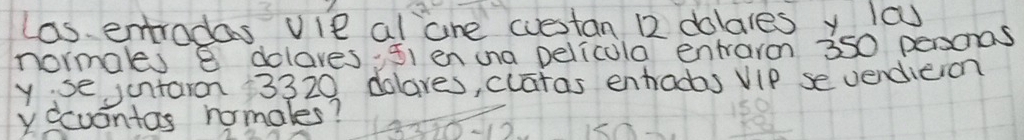 Las entradas VIP al cine cuestan 12 dolares y las
normales 8 dolares. Si en una pelicula entraron 350 personas
y se juntaron 3320 dolares, cuatas entradas VIP se vendieron
y ¿cuántas normales?